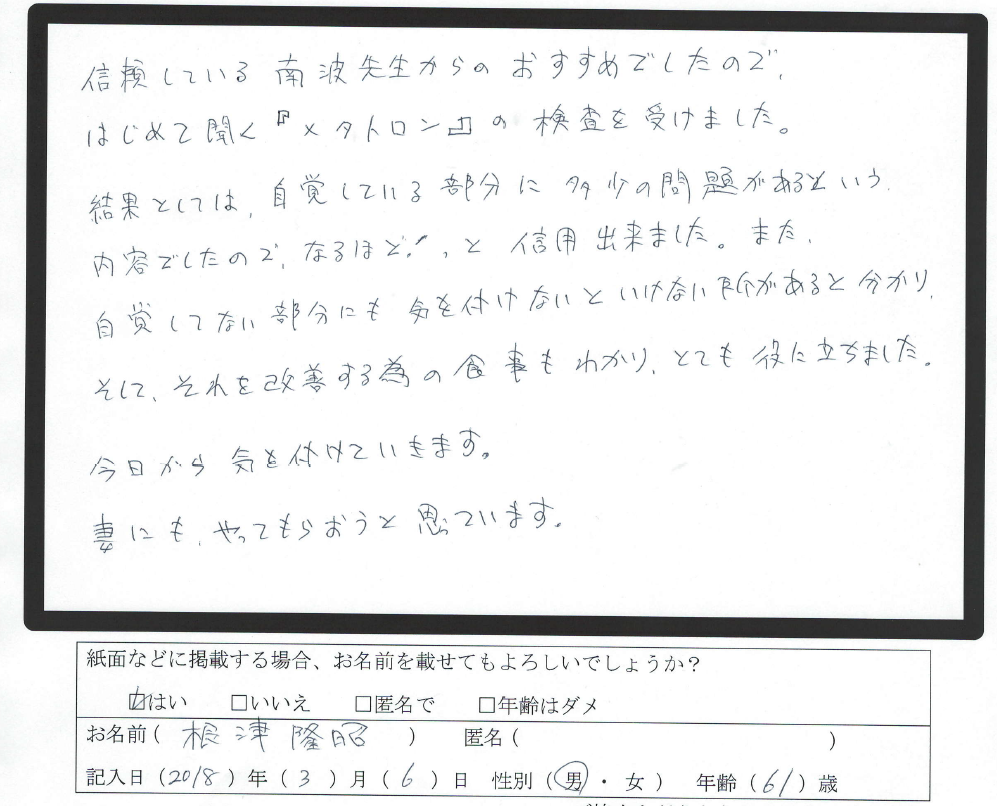 信頼している南波先生からのおすすめでしたので、
はじめて聞く『メタトロン』の検査を受けました。
結果としては、自覚している部分に多少の問題があるという、
内容でしたので、なるほど!、と信用出来ました。また、
自覚してない部分にも気を付けないといけない所があると分かり、
そして、それを改善する為の食事もわかり、とても役に立ちました。
今日から気を付けていきます。
妻にも、やってもらおうと思っています。
紙面などに掲載する場合、お名前を載せてもよろしいでしょうか?
☑はい □いいえ □匿名で □年齢はダメ
お名前( 根津隆昭 ) 匿名( )
記入日(2018)年(3)月(6)日 性別(男・女) 年齢(61)歳